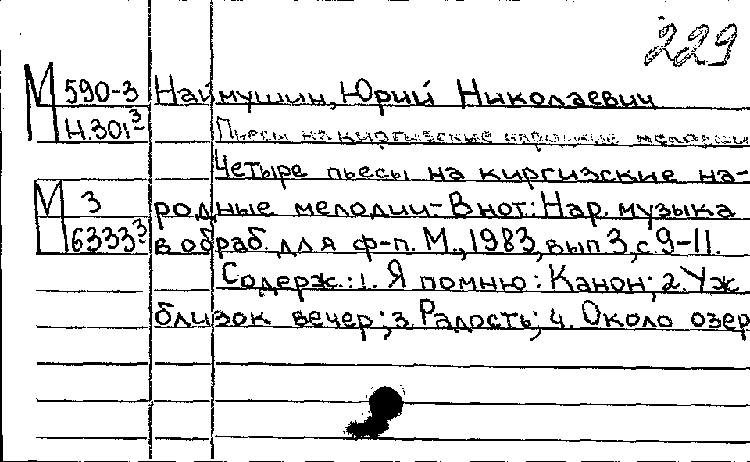 229
М 590-3 Наймушин, Юрий Николаевич
Н.301³ Пьесы на киргизские народные мелодии
Четыре пьесы на киргизские на-
М 3 родные мелодии.- В нот.: Нар. музыка
63333³ в обраб. для ф-п. М., 1983, вып.3, с.9-11.
Содерж.: 1. Я помню: Канон; 2. Уж
близок вечер; 3. Радость; 4. Около озер